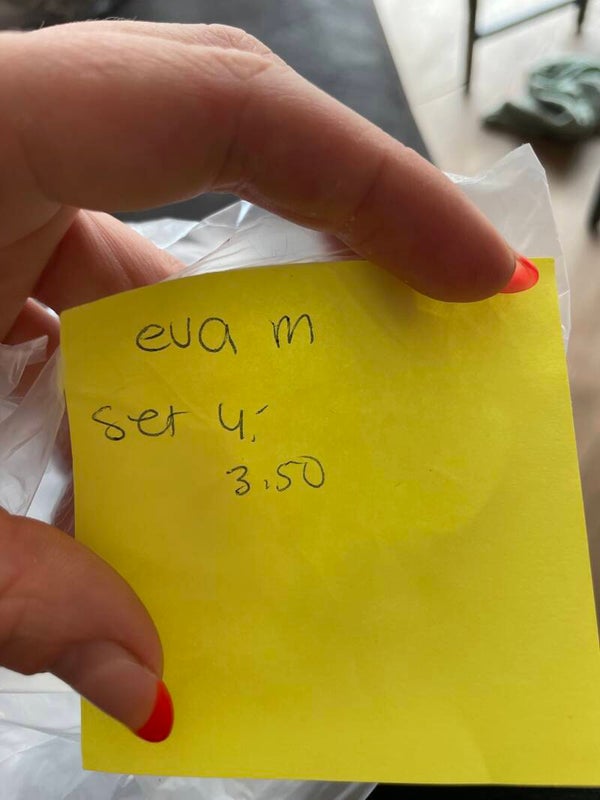 eva m
set 4,-
3.50